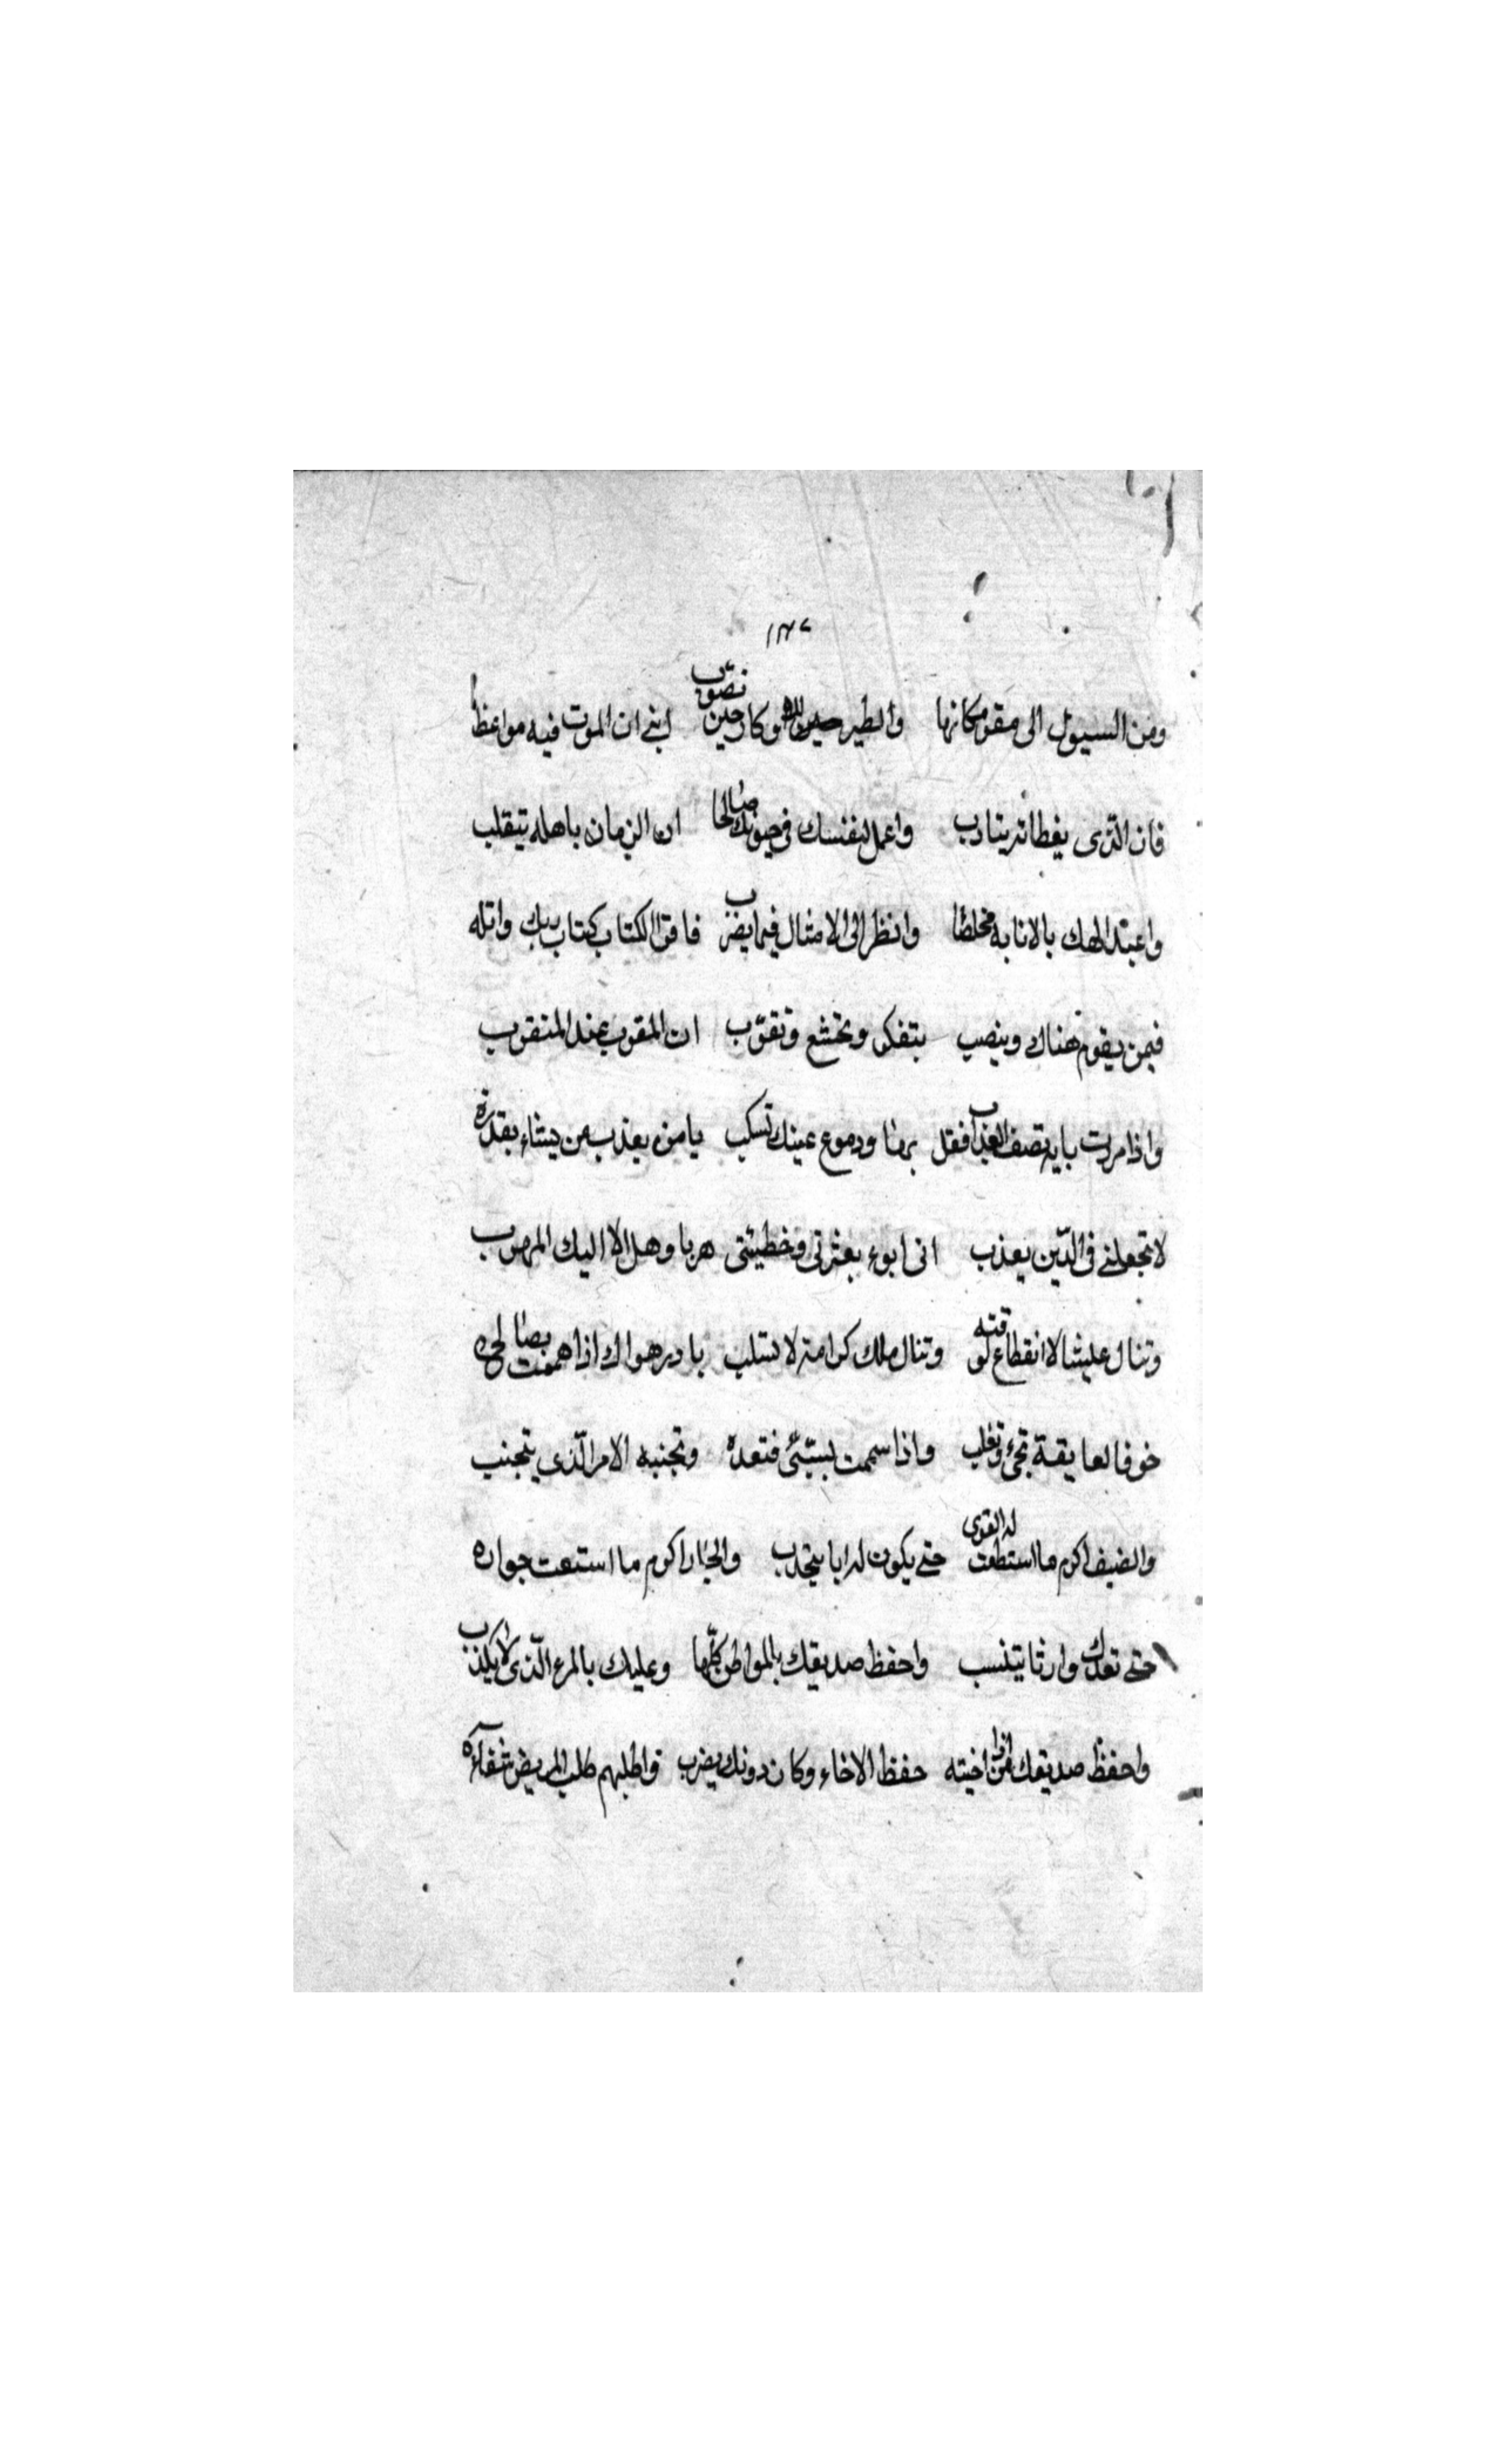 ١٣٧
ومن السيول الى مقر مكانها والطير للاوكار حين تصوب ابني ان الموت فيه مواعظا
فان الذى يغطاته يتادب واعمل لنفسك فى حيوتك صالحا ان الزمان باهله يتقلب
واعبد الهك بالانابه مخلصا وانظر الى الامثال فيما يضرب فاقرا الكتاب كتاب ربك واتله
فيمن يقوم هناك وينصب بتفكر وتخشع وتقرّب ان المقرب عند المتقرب
واذا مررت بايه تصف العذاب فقل برنا ودموع عينك تسكب يا من يعذب من يشاء بقدرة
لا تجعلنے فى الذين يعذب انى ابوء بعثرتى وخطيئتى هربا وهل الا اليك المهرب
وتنال عليشا لا انقطاع لوقته وتنال ملك كرامة لا تسلب بادر هواك اذا هممت بصالحى
خوفا لعايقة تجئ وتغلب واذا سممت بسيّئى فتعده وتجنبه الامر الّذى يتجنب
والضيف اكرم ما استطعت له القوى حتے يكون له ابا يتحدب والجار اكرم ما استعت جواره
حتے تعدك وارثا يتنسب واحفظ صديقك بالمواطن كلّها وعليك بالمرء الّذى لا يكذب
واحفظ صديقك اذا اخيته حفظ الاخاء وكان دونك يضرب واطلبهم طلب المريض شفاءه